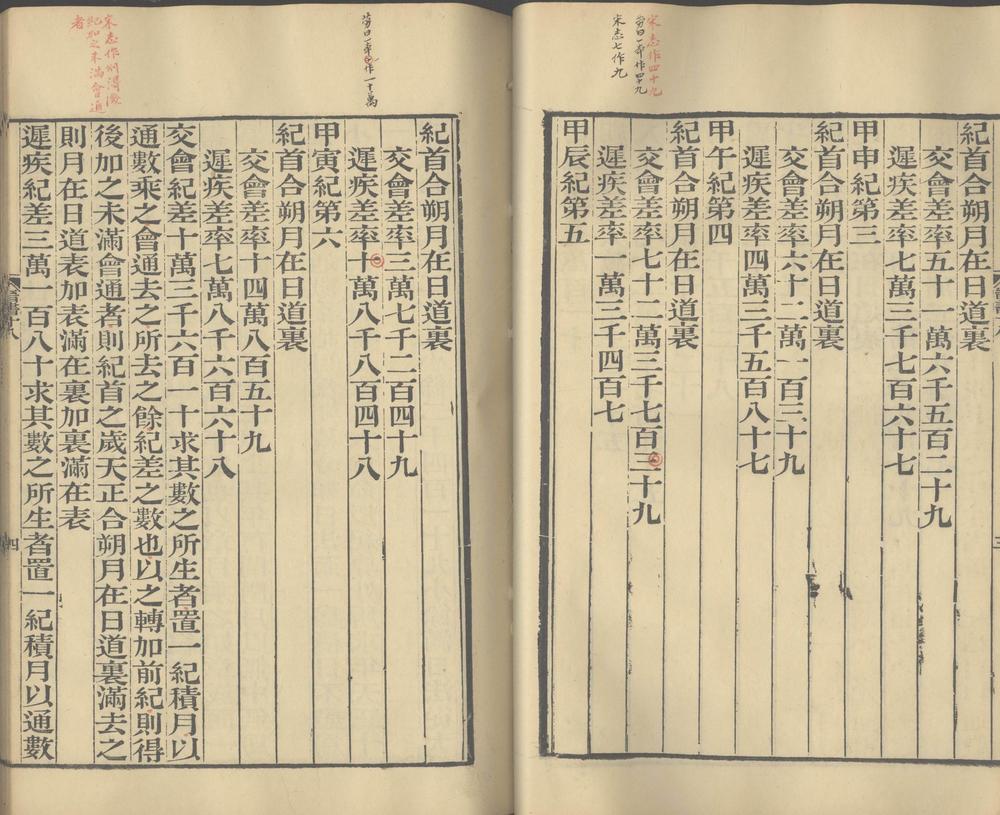 宋志作四十九
勞曰一本作四十九
宋志七作九
紀首合朔月在日道裏
交會差率五十一萬六千五百二十九
遲疾差率七萬三千七百六十七
甲申紀第三
紀首合朔月在日道裏
交會差率六十二萬一百三十九
遲疾差率四萬三千五百八十七
甲午紀第四
紀首合朔月在日道裏
交會差率七十二萬三千七百三十九
遲疾差率一萬三千四百七
甲辰紀第五
勞曰一本作一十萬
宋志作則得後
紀加之未滿會通
者
紀首合朔月在日道裏
交會差率三萬七千二百四十九
遲疾差率十萬八千八百四十八
甲寅紀第六
紀首合朔月在日道裏
交會差率十四萬八百五十九
遲疾差率七萬八千六百六十八
交會紀差十萬三千六百一十求其數之所生者置一紀積月以
通數乘之會通去之所去之餘紀差之數也以之轉加前紀則得
後加之未滿會通者則紀首之歲天正合朔月在日道裏滿去之
則月在日道表加表滿在裏加裏滿在表
遲疾紀差三萬一百八十求其數之所生者置一紀積月以通數
四